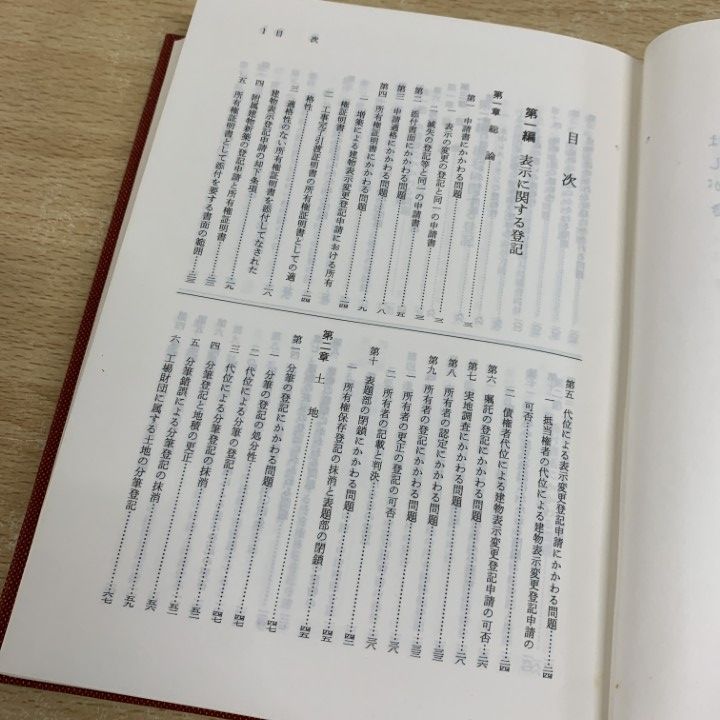 目次
第一編 表示に関する登記
第一章 総論
第一 申請書にかかわる問題……三
一 表示の変更の登記と同一の申請書……三
二 滅失の登記等と同一の申請書……三
第二 添付書面にかかわる問題……五
第三 申請適格にかかわる問題……八
第四 所有権証明書にかかわる問題……九
一 増築による建物表示変更登記申請における所有
権証明書……一四
二 工事完了引渡証明書の所有権証明書としての適
格性……一四
三 適格性のない所有権証明書を添付してなされた
建物表示登記申請の却下条項……一八
四 附属建物新築の登記申請と所有権証明書……一九
五 所有権証明書として添付を要する書面の範囲……二三
第五 代位による表示変更登記申請にかかわる問題……二四
一 抵当権者の代位による建物表示変更登記申請の
可否……二四
二 債権者代位による建物表示変更登記申請の可否……二六
第六 嘱託の登記にかかわる問題……二八
第七 実地調査にかかわる問題……三三
第八 所有者の認定にかかわる問題……三三
第九 所有者の登記にかかわる問題……三八
一 所有者の更正の登記の可否……三八
二 所有者の記載と判決……三八
第十 表題部の閉鎖にかかわる問題……四二
一 所有権保存登記の抹消と表題部の閉鎖……四五
第二章 土地
第一 分筆の登記にかかわる問題……四七
一 分筆の登記の処分性……四七
二 代位による分筆の登記……四七
三 代位による分筆登記の抹消……五二
四 分筆登記と地積の更正……五二
五 分筆錯誤による分筆登記の抹消……五六
六 工場財団に属する土地の分筆登記……五九
六七
目次
1